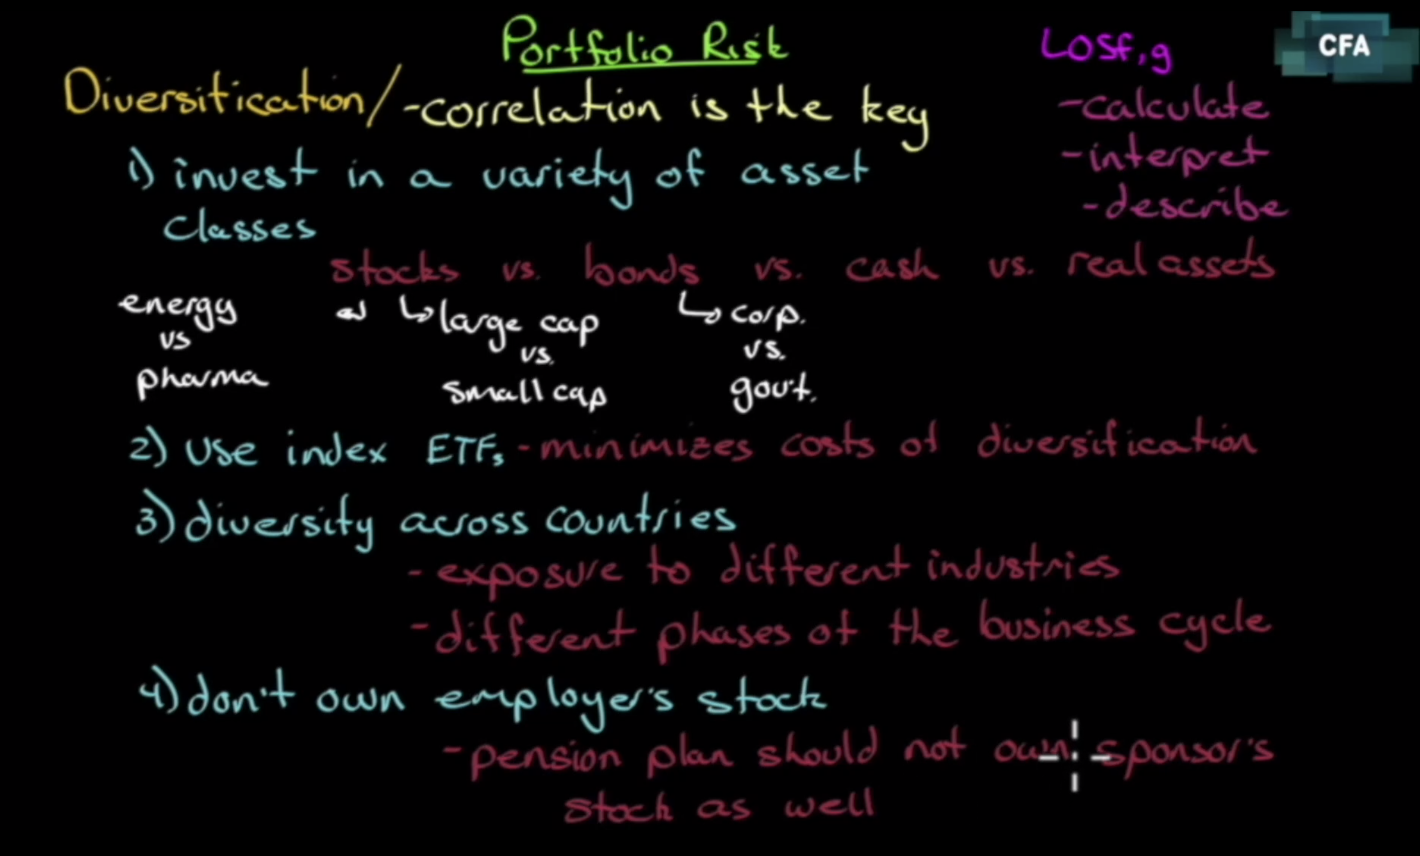 Portfolio Risk
LOSf,g
CFA
Diversification/-correlation is the key
-calculate
-interpret
-describe
1) invest in a variety of asset
classes
stocks vs. bonds vs. cash vs. real assets
energy
vs
pharma
large cap
vs.
small cap
corp.
vs.
gov't.
2) Use index ETFs - minimizes costs of diversification
3) diversity across countries
- exposure to different industries
- different phases of the business cycle
4) don't own employer's stock
- pension plan should not own sponsor's
stock as well